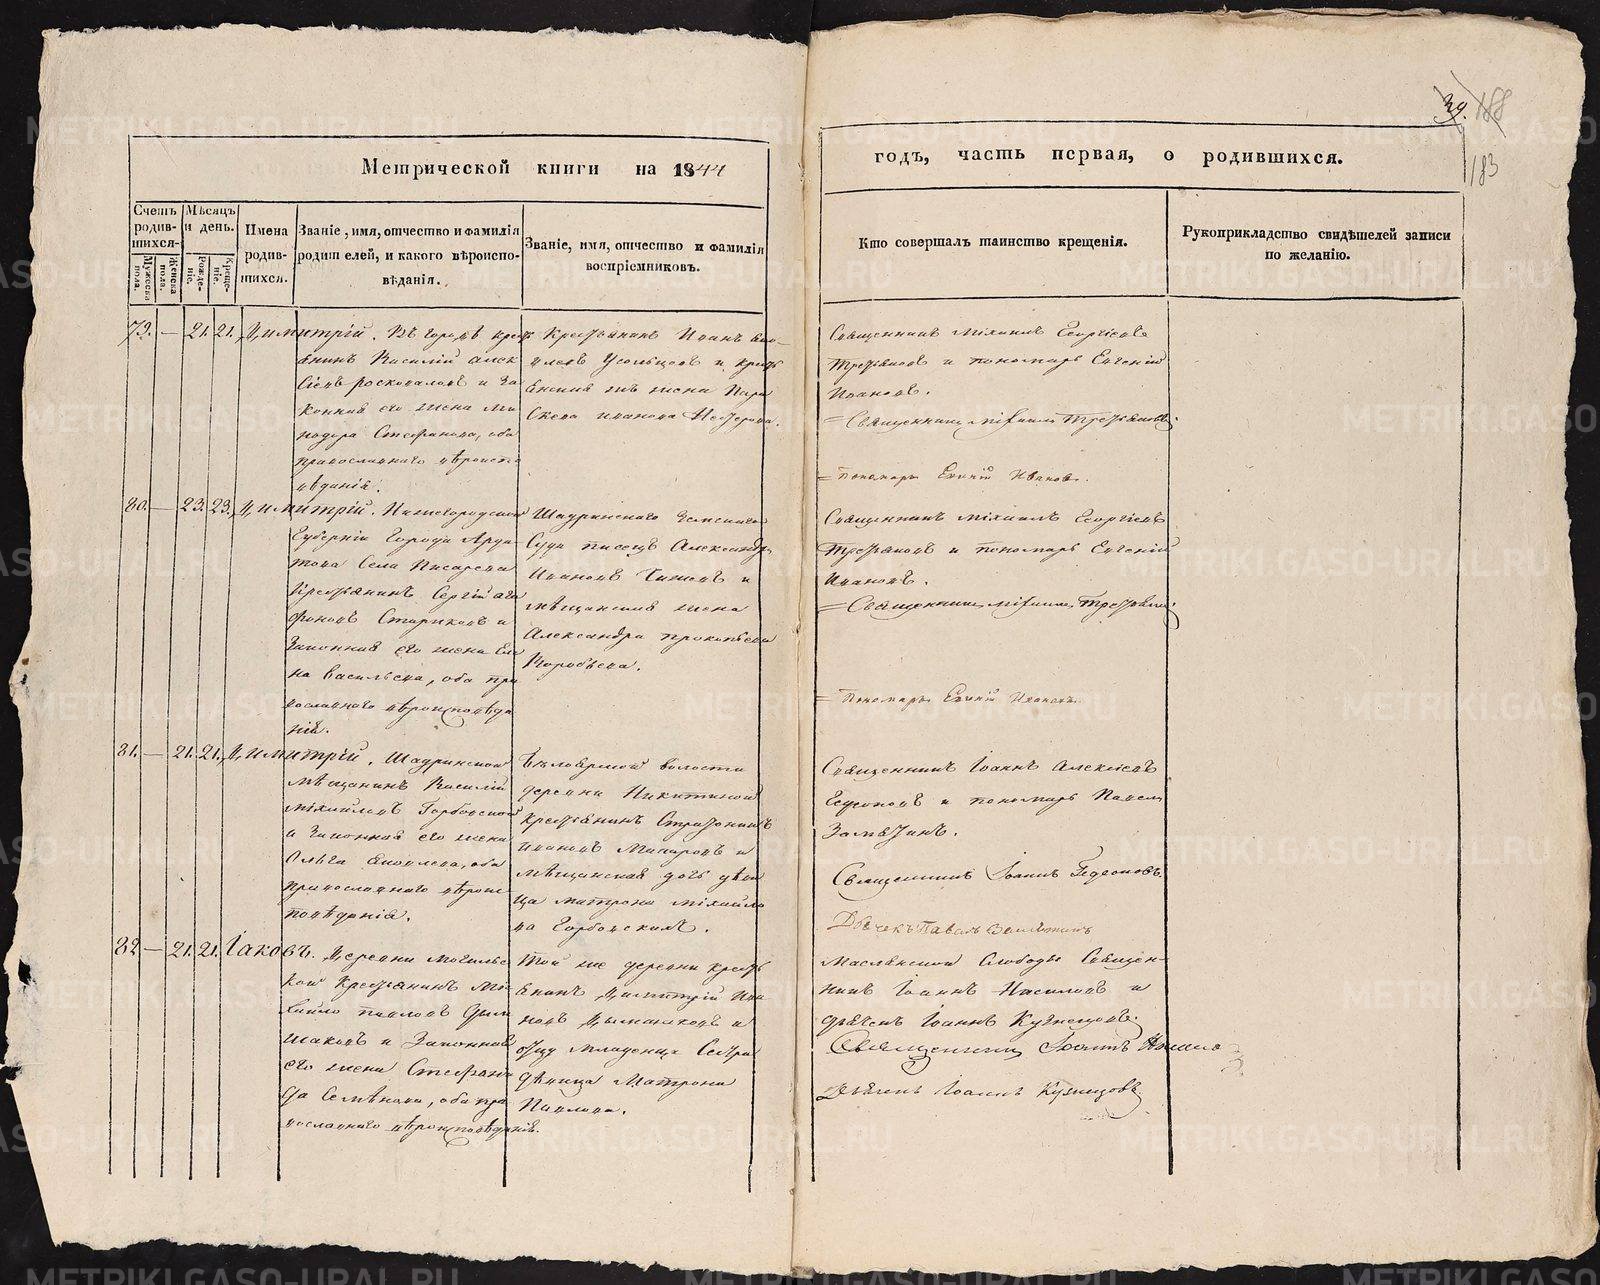 39. 188
183
Метрической книги на 1844
годъ, часть первая, о родившихся.
Счетъ родив-шихся.
Мѣсяцъ и день.
Мужеска пола.
Женска пола.
Рожде-ніе.
Креще-ніе.
Имена родив-шихся.
Званіе, имя, отчество и фамилія родителей, и какого вѣроиспо-вѣданія.
Званіе, имя, отчество и фамилія воспріемниковъ.
Кто совершалъ таинство крещенія.
Рукоприкладство свидѣтелей записи по желанію.
79. — 21. 21. Димитрій.
Въ городѣ крест
янинъ Василій Алек
сіевъ и За
конная его жена Ми
нодора Стефанова, оба
православнаго вѣроиспо
вѣданія.
Крестьянинъ Иванъ
Усольцовъ и крест
янская жена Пара
скева Иванова Нестерова.
Священникъ Михаилъ Георгіевъ
Третьяковъ и пономарь Евгеній
Ивановъ.
= Священникъ Михаилъ Третьяковъ.
= Пономарь Евгеній Ивановъ.
80. — 23. 23. Димитрій.
Нижегородской
Губерніи Города Арда
това Села Писарева
Крестьянинъ Сергій Ага
фоновъ Стариковъ и
Законная его жена Еле
на Васильева, оба пра
вославнаго вѣроисповѣда
нія.
Шадринскаго Земскаго
Суда писецъ Александръ
Ивановъ и
мѣщанская жена
Александра Прокопьева
Воробьева.
Священникъ Михаилъ Георгіевъ
Третьяковъ и пономарь Евгеній
Ивановъ.
= Священникъ Михаилъ Третьяковъ.
= Пономарь Евгеній Ивановъ.
81. — 21. 21. Димитрій.
Шадринской
мѣщанинъ Василій
Михайловъ Горбовской
и Законная его жена
Ольга Яковлева, оба
православнаго вѣроис-
повѣданія.
волости
деревни Никитиной
крестьянинъ
Ивановъ Макаровъ и
мѣщанская дочь дѣви
ца Матрона Михайло
ва Горбовскихъ.
Священникъ Іоаннъ Алексіевъ
Гедеоновъ и пономарь Павелъ
Замятинъ.
Священникъ Іоаннъ Гедеоновъ.
Дьячекъ Павелъ Замятинъ
82 — 21. 21. Іаковъ.
Деревни Могильс
кой Крестьянинъ Ми
хайло Павловъ Дым
шаковъ и Законная
его жена Стефани
да Семѣнова, оба пра
вославнаго вѣроисповѣданія.
Той же деревни крест
янинъ Димитрій Ива
новъ Дымшаковъ и
отцу младенца Сестра
дѣвица Матрона
Павлова.
Маслянской Слободы Священ-
никъ Іоаннъ Насиловъ и
дьячекъ Іоаннъ Кузнецовъ.
Священникъ Іоаннъ Насило
Дьячекъ Іоаннъ Кузнецовъ
METRIKI.GASO-URAL.RU